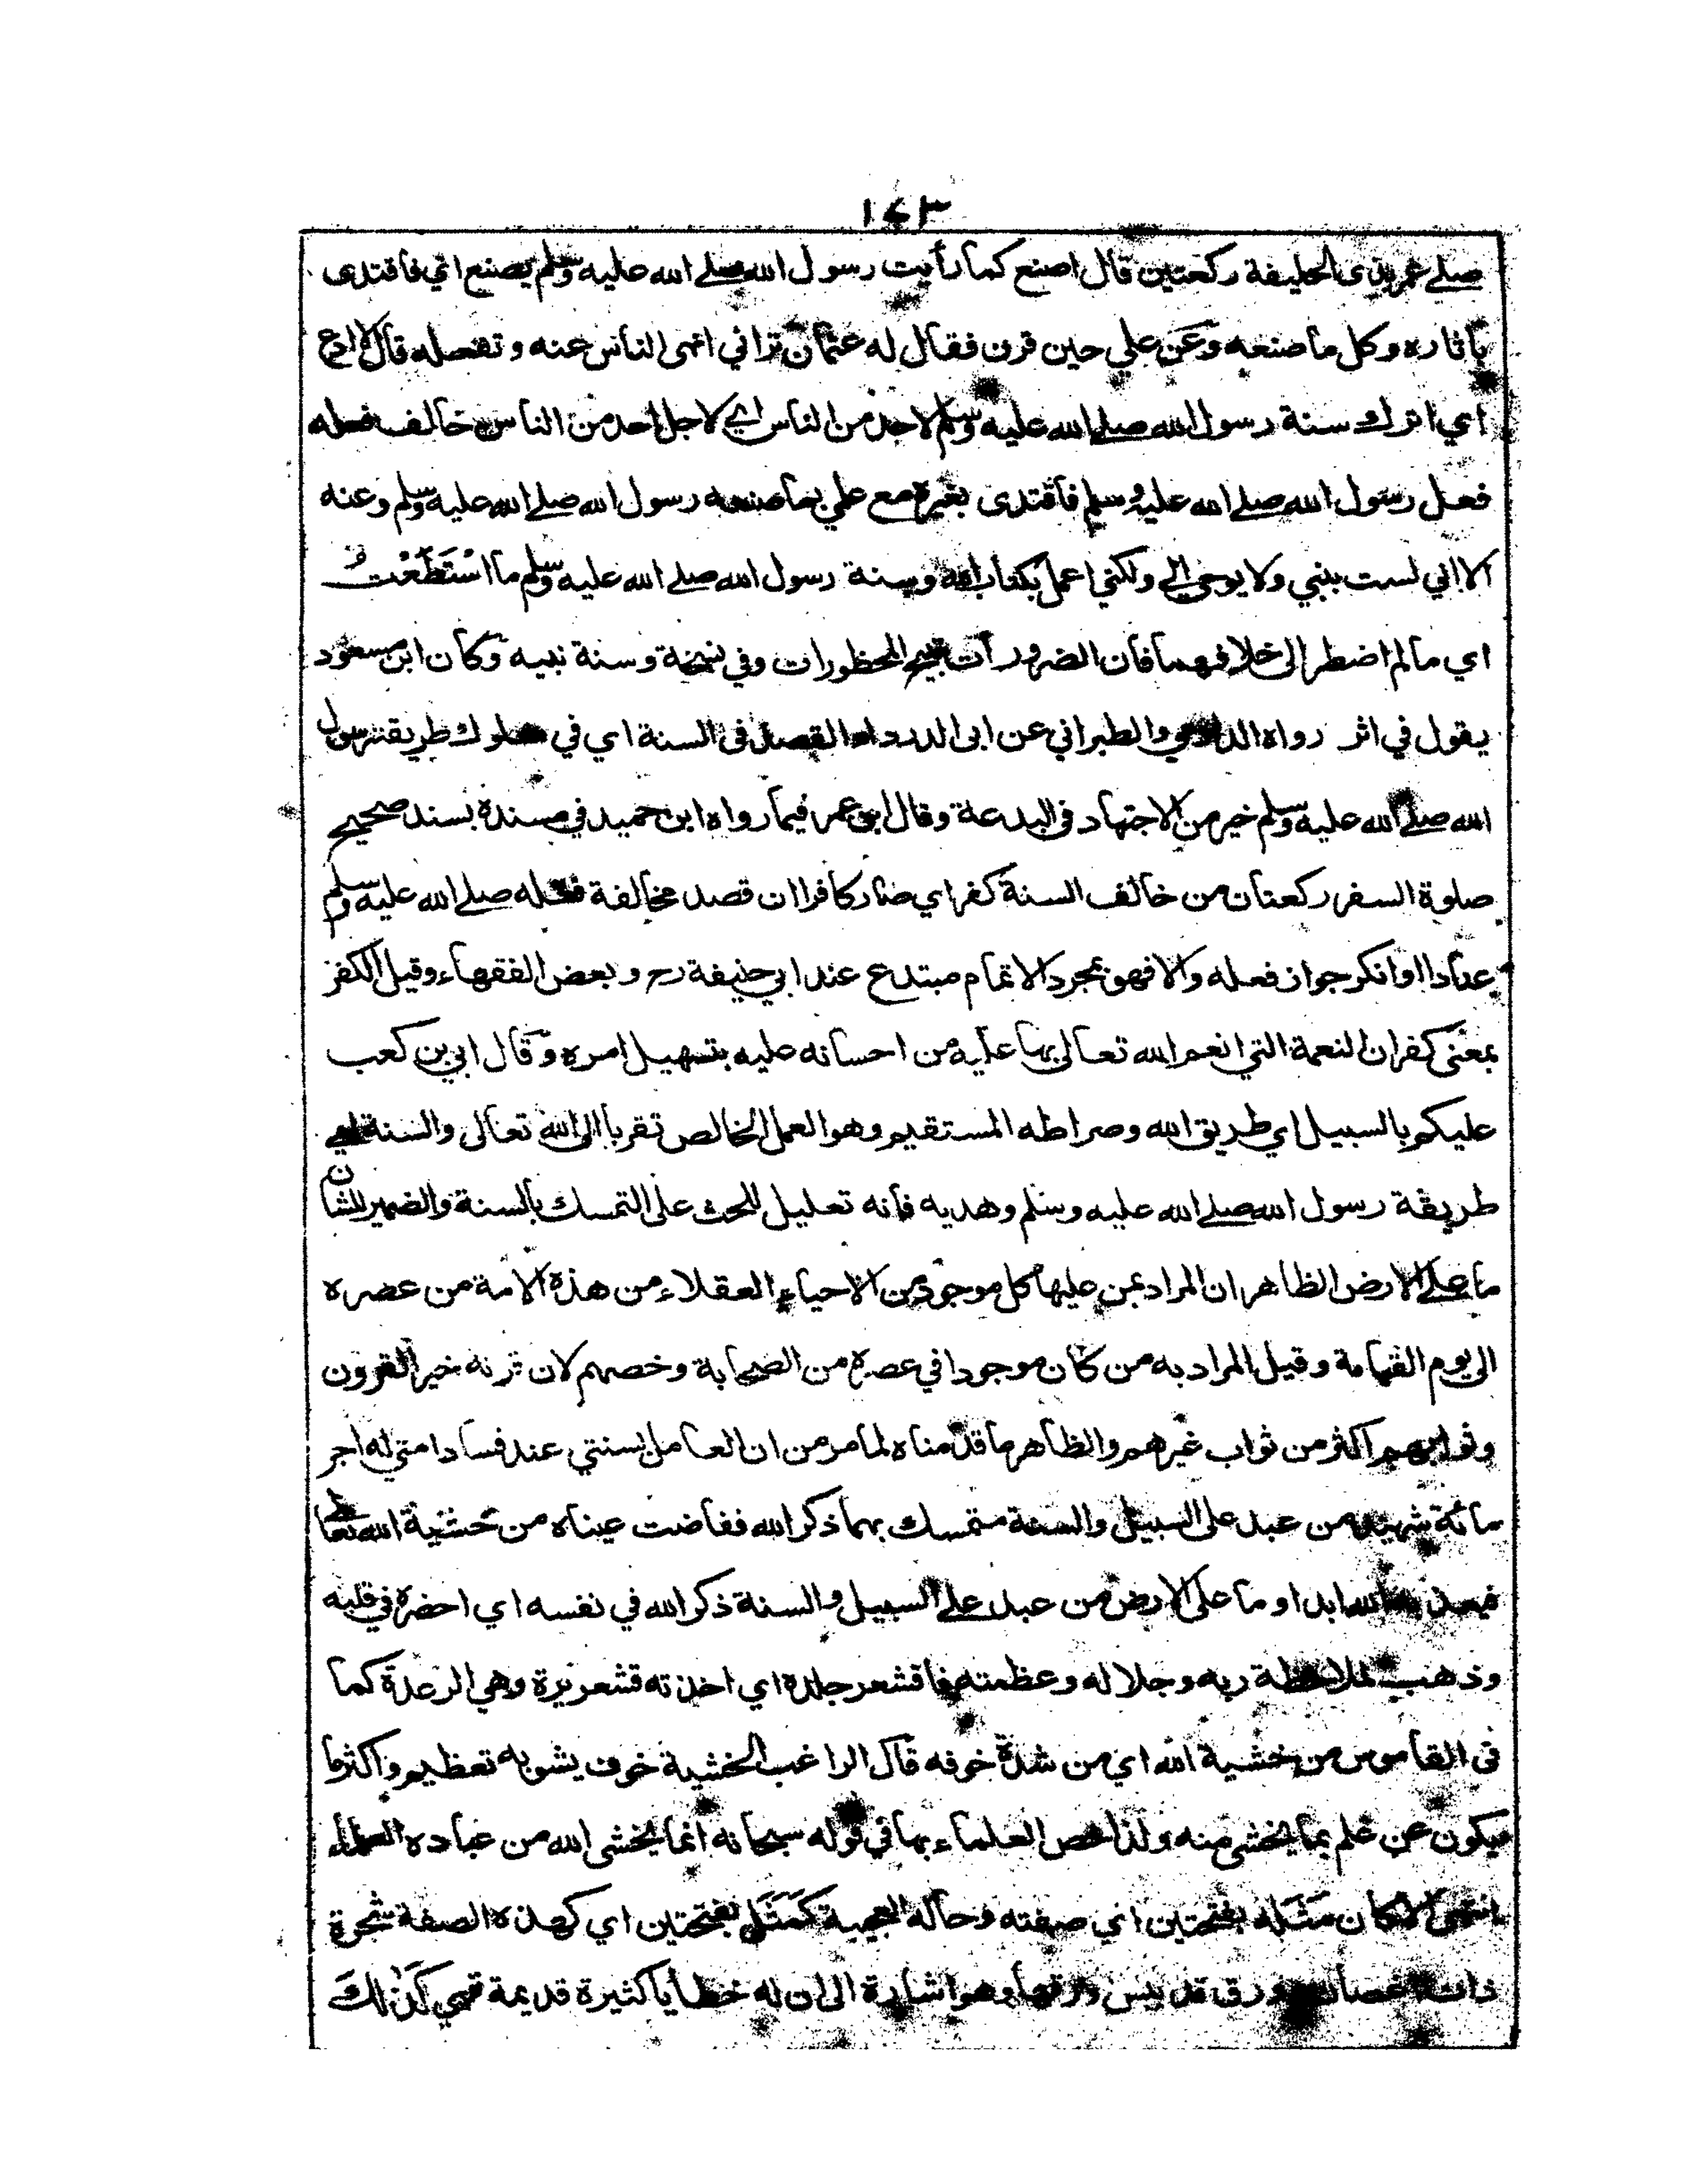 ١٤٣
صلے عمر بذى الحليفة ركعتين قال اصنع كما رأيت رسول الله صلے الله عليه وسلم يصنع اي فاقتدى
باثاره وكل ما صنعه وعن علي حين قرن فقال له عثمان تراني انهى الناس عنه وتفعله قال
اي اترك سنة رسول الله صلے الله عليه وسلم لاحد من الناس اي لاجل احد من الناس خالف فعله
فعل رسول الله صلے الله عليه وسلم فاقتدى بغيره مع علمي بما صنعه رسول الله صلے الله عليه وسلم وعنه
الا اني لست بنبي ولا يوحى الي ولكني اعمل بكتاب الله وسنة رسول الله صلے الله عليه وسلم ما اسْتَطَعْتُ
اي ما لم اضطر الى خلافهما فان الضرورات تبيح المحظورات وفي نسخة وسنة نبيه وكان ابن مسعود
يقول في اثر رواه الدارمي والطبراني عن ابى الدرداء القصد فى السنة اي في سلوك طريقة رسول
الله صلے الله عليه وسلم خير من الاجتهاد فى البدعة وقال ابن عمر فيما رواه ابن حميد في مسنده بسند صحيح
صلوة السفر ركعتان من خالف السنة كفر اي صار كافرا ان قصد مخالفة فعله صلے الله عليه وسلم
عنادا او انكر جواز فعله والا فهو بمجرد الاتمام مبتدع عند ابي حنيفة رح وبعض الفقهاء وقيل الكفر
بمعنى كفران النعمة التي انعم الله تعالى بها عليه من احسانه عليه بتسهيل امره وقال ابي بن كعب
عليكم بالسبيل اي طريق الله وصراطه المستقيم وهو العمل الخالص تقربا الى الله تعالى والسنة اي
طريقة رسول الله صلے الله عليه وسلم وهديه فانه تعليل للحث على التمسك بالسنة والضمير للشان
ما على الارض الظاهر ان المراد بمن عليها كل موجود من الاحياء العقلاء من هذة الامة من عصره
الى يوم القيامة وقيل المراد به من كان موجودا في عصره من الصحابة وخصهم لان قرنه خير القرون
وثوابهم اكثر من ثواب غيرهم والظاهر ما قدمناه لما مر من ان العامل بسنتي عند فساد امتي له اجر
مائة شهيد من عبد على السبيل والسنة متمسك بهما ذكر الله ففاضت عيناه من خشية الله تعالى
فيعذبه الله ابدا وما على الارض من عبد علے السبيل والسنة ذكر الله في نفسه اي احضره في قلبه
وذهب لملاحظة ربه وجلاله وعظمته فاقشعر جلده اي اخذته قشعريرة وهي الرعدة كما
فى القاموس من خشية الله اي من شدة خوفه قال الراغب الخشية خوف يشوبه تعظيم واكثر ما
يكون عن علم بما يخشى منه ولذا خص العلماء بها في قوله سبحانه انما يخشى الله من عباده العلماء
انتهى الا كان مَثَله بفتحتين اي صفته وحاله العجيبة كَمَثَلِ بفتحتين اي كهذه الصفة شجرة
ذات اغصان وورق قد يبس ورقها وهو اشارة الى ان له خطايا كثيرة قديمة فهي كَذٰلك